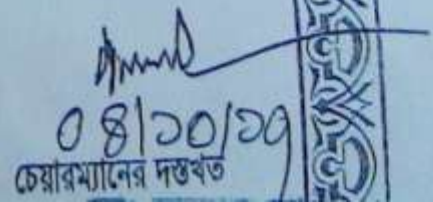 ০৪/১০/১৭
চেয়ারম্যানের দস্তখত